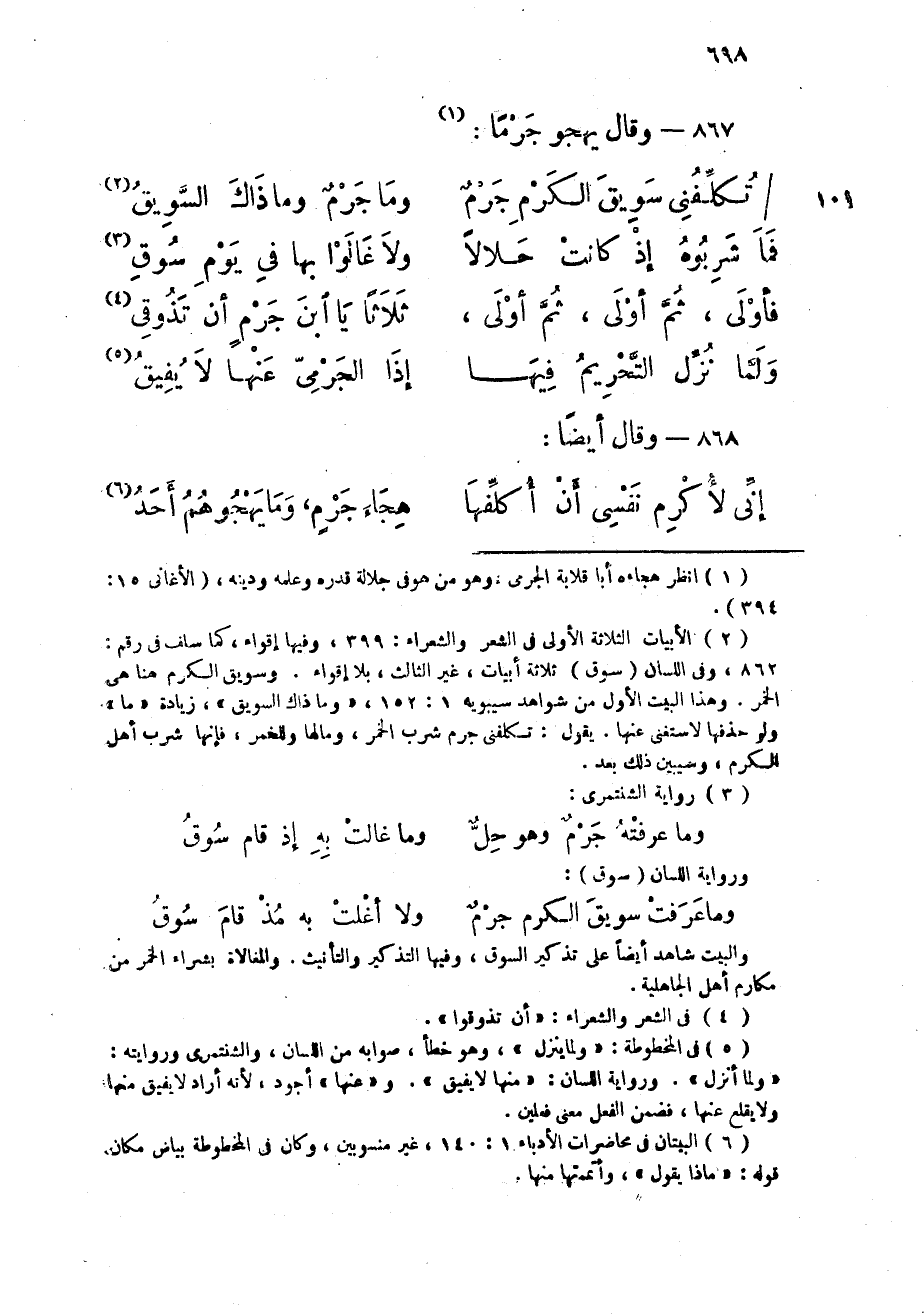 ٦٩٨
٨٦٧ – وقال يهجو جَرْمًا : (١)
١٠٩ / تُكلِّفُنِى سَوِيقَ الكَرْمِ جَرْمٌ ومَا جَرْمٌ وما ذَاكَ السَّوِيقُ (٢)
فَمَا شَرِبُوهُ إِذْ كانتْ حَلالاً ولاَ غَالَوْا بها فى يَوْمِ سُوقِ (٣)
فأوْلَى ، ثُمَّ أوْلَى ، ثُمَّ أوْلَى ، ثَلاَثًا يَا ٱبنَ جَرْمٍ أنْ تَذُوقِى (٤)
وَلَمَّا نُزِّلَ التَّحْرِيمُ فِيهَا إِذَا الجَرْمِىّ عَنْهَا لاَ يُفِيقُ (٥)
٨٦٨ – وقال أيضًا :
إنِّى لأُكْرِم نَفْسِى أَنْ أُكلِّفَهَا هِجَاءِ جَرْمٍ، وَمَا يَهْجُوهُمُ أَحَدُ (٦)
( ١ ) انظر هجاءه أبا قلابة الجرمى ، وهو من هو فى جلالة قدره وعلمه ودينه ، ( الأغانى ١٥ :
٣٩٤ ) .
( ٢ ) الأبيات الثلاثة الأولى فى الشعر والشعراء : ٣٩٩ ، وفيها إقواء ، كما سلف فى رقم :
٨٦٢ ، وفى اللسان ( سوق ) ثلاثة أبيات ، غير الثالث ، بلا إقواء . وسويق الكرم هنا هى
الخمر . وهذا البيت الأول من شواهد سيبويه ١ : ١٥٢ ، « وما ذاك السويق » ، زيادة « ما »
ولو حذفها لاستغنى عنها . يقول : تكلفنى جرم شرب الخمر ، ومالها وللخمر ، فإنها شرب أهل
الكرم ، وسيبين ذلك بعد .
( ٣ ) رواية الشنتمرى :
وما عرفتْهُ جَرْمٌ وهو حِلٌّ وما غالتْ بِهِ إذ قام سُوقُ
ورواية اللسان ( سوق ) :
وما عَرَفتْ سويقَ الكرم جرْمٌ ولا أغْلتْ به مُذْ قامَ سُوقُ
والبيت شاهد أيضاً على تذكير السوق ، وفيها التذكير والتأنيث . والمغالاة بشراء الخمر من
مكارم أهل الجاهلية .
( ٤ ) فى الشعر والشعراء : « أن تذوقوا » .
( ٥ ) فى المخطوطة : « ولما ينزل » ، وهو خطأ ، صوابه من اللسان ، والشنتمرى وروايته :
« ولما أنزل » . ورواية اللسان : « منها لا يفيق » . و « عنها » أجود ، لأنه أراد لا يفيق منها
ولا يقلع عنها ، فضمن الفعل معنى فعلين .
( ٦ ) البيتان فى محاضرات الأدباء ١ : ١٤٠ ، غير منسوبين ، وكان فى المخطوطة بياض مكان
قوله : « ماذا يقول » ، وأتممتها منها .